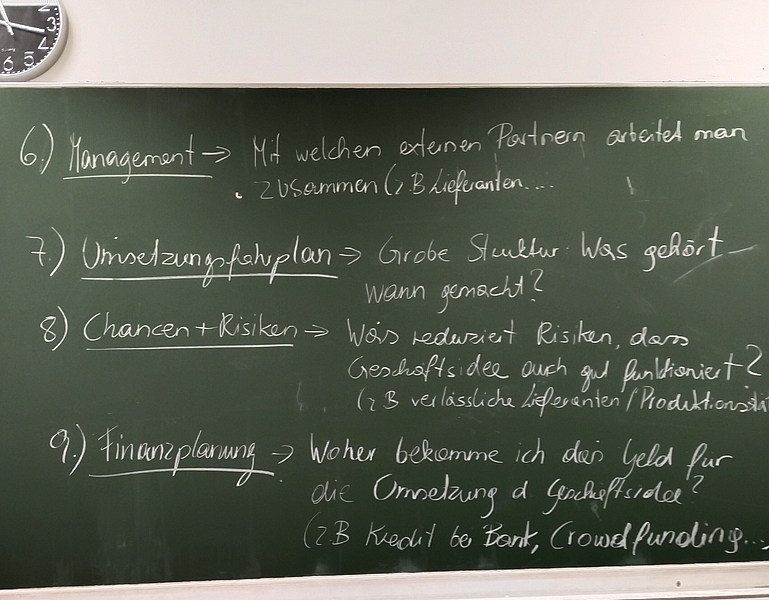 2
3
4
5
6
6.) Management → Mit welchen externen Partnern arbeitet man
zusammen (z.B Lieferanten....
7.) Umsetzungsfahrplan → Grobe Struktur: Was gehört
wann gemacht?
8.) Chancen + Risiken → Was reduziert Risiken, dass
Geschäftsidee auch gut funktioniert?
(z B verlässliche Lieferanten / Produktionsstä
9.) Finanzplanung → Woher bekomme ich das Geld für
die Umsetzung d Geschäftsidee?
(z B Kredit bei Bank, Crowdfunding...,